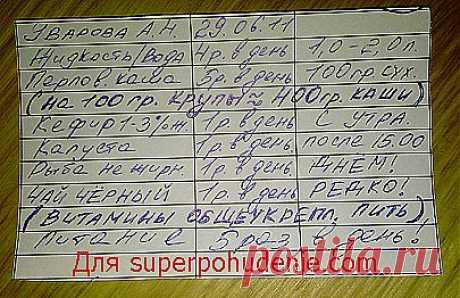 УВАРОВА А.Н. 29.06.11
Жидкость/вода 4р. в день 1,0-2,0л.
Перлов. каша 5р. в день 100гр. сух.
(на 100гр. крупы ≈ 400гр. каши)
Кефир 1-3%ж. 1р. в день с утра.
Капуста 1р. в день после 15.00
Рыба не жирн. 1р. в день. ДНЁМ!
ЧАЙ ЧЁРНЫЙ 1р. в день РЕДКО!
(Витамины общеукрепл. пить)
Питание 5 раз в день!
Для superpohudenie.com
postila.ru